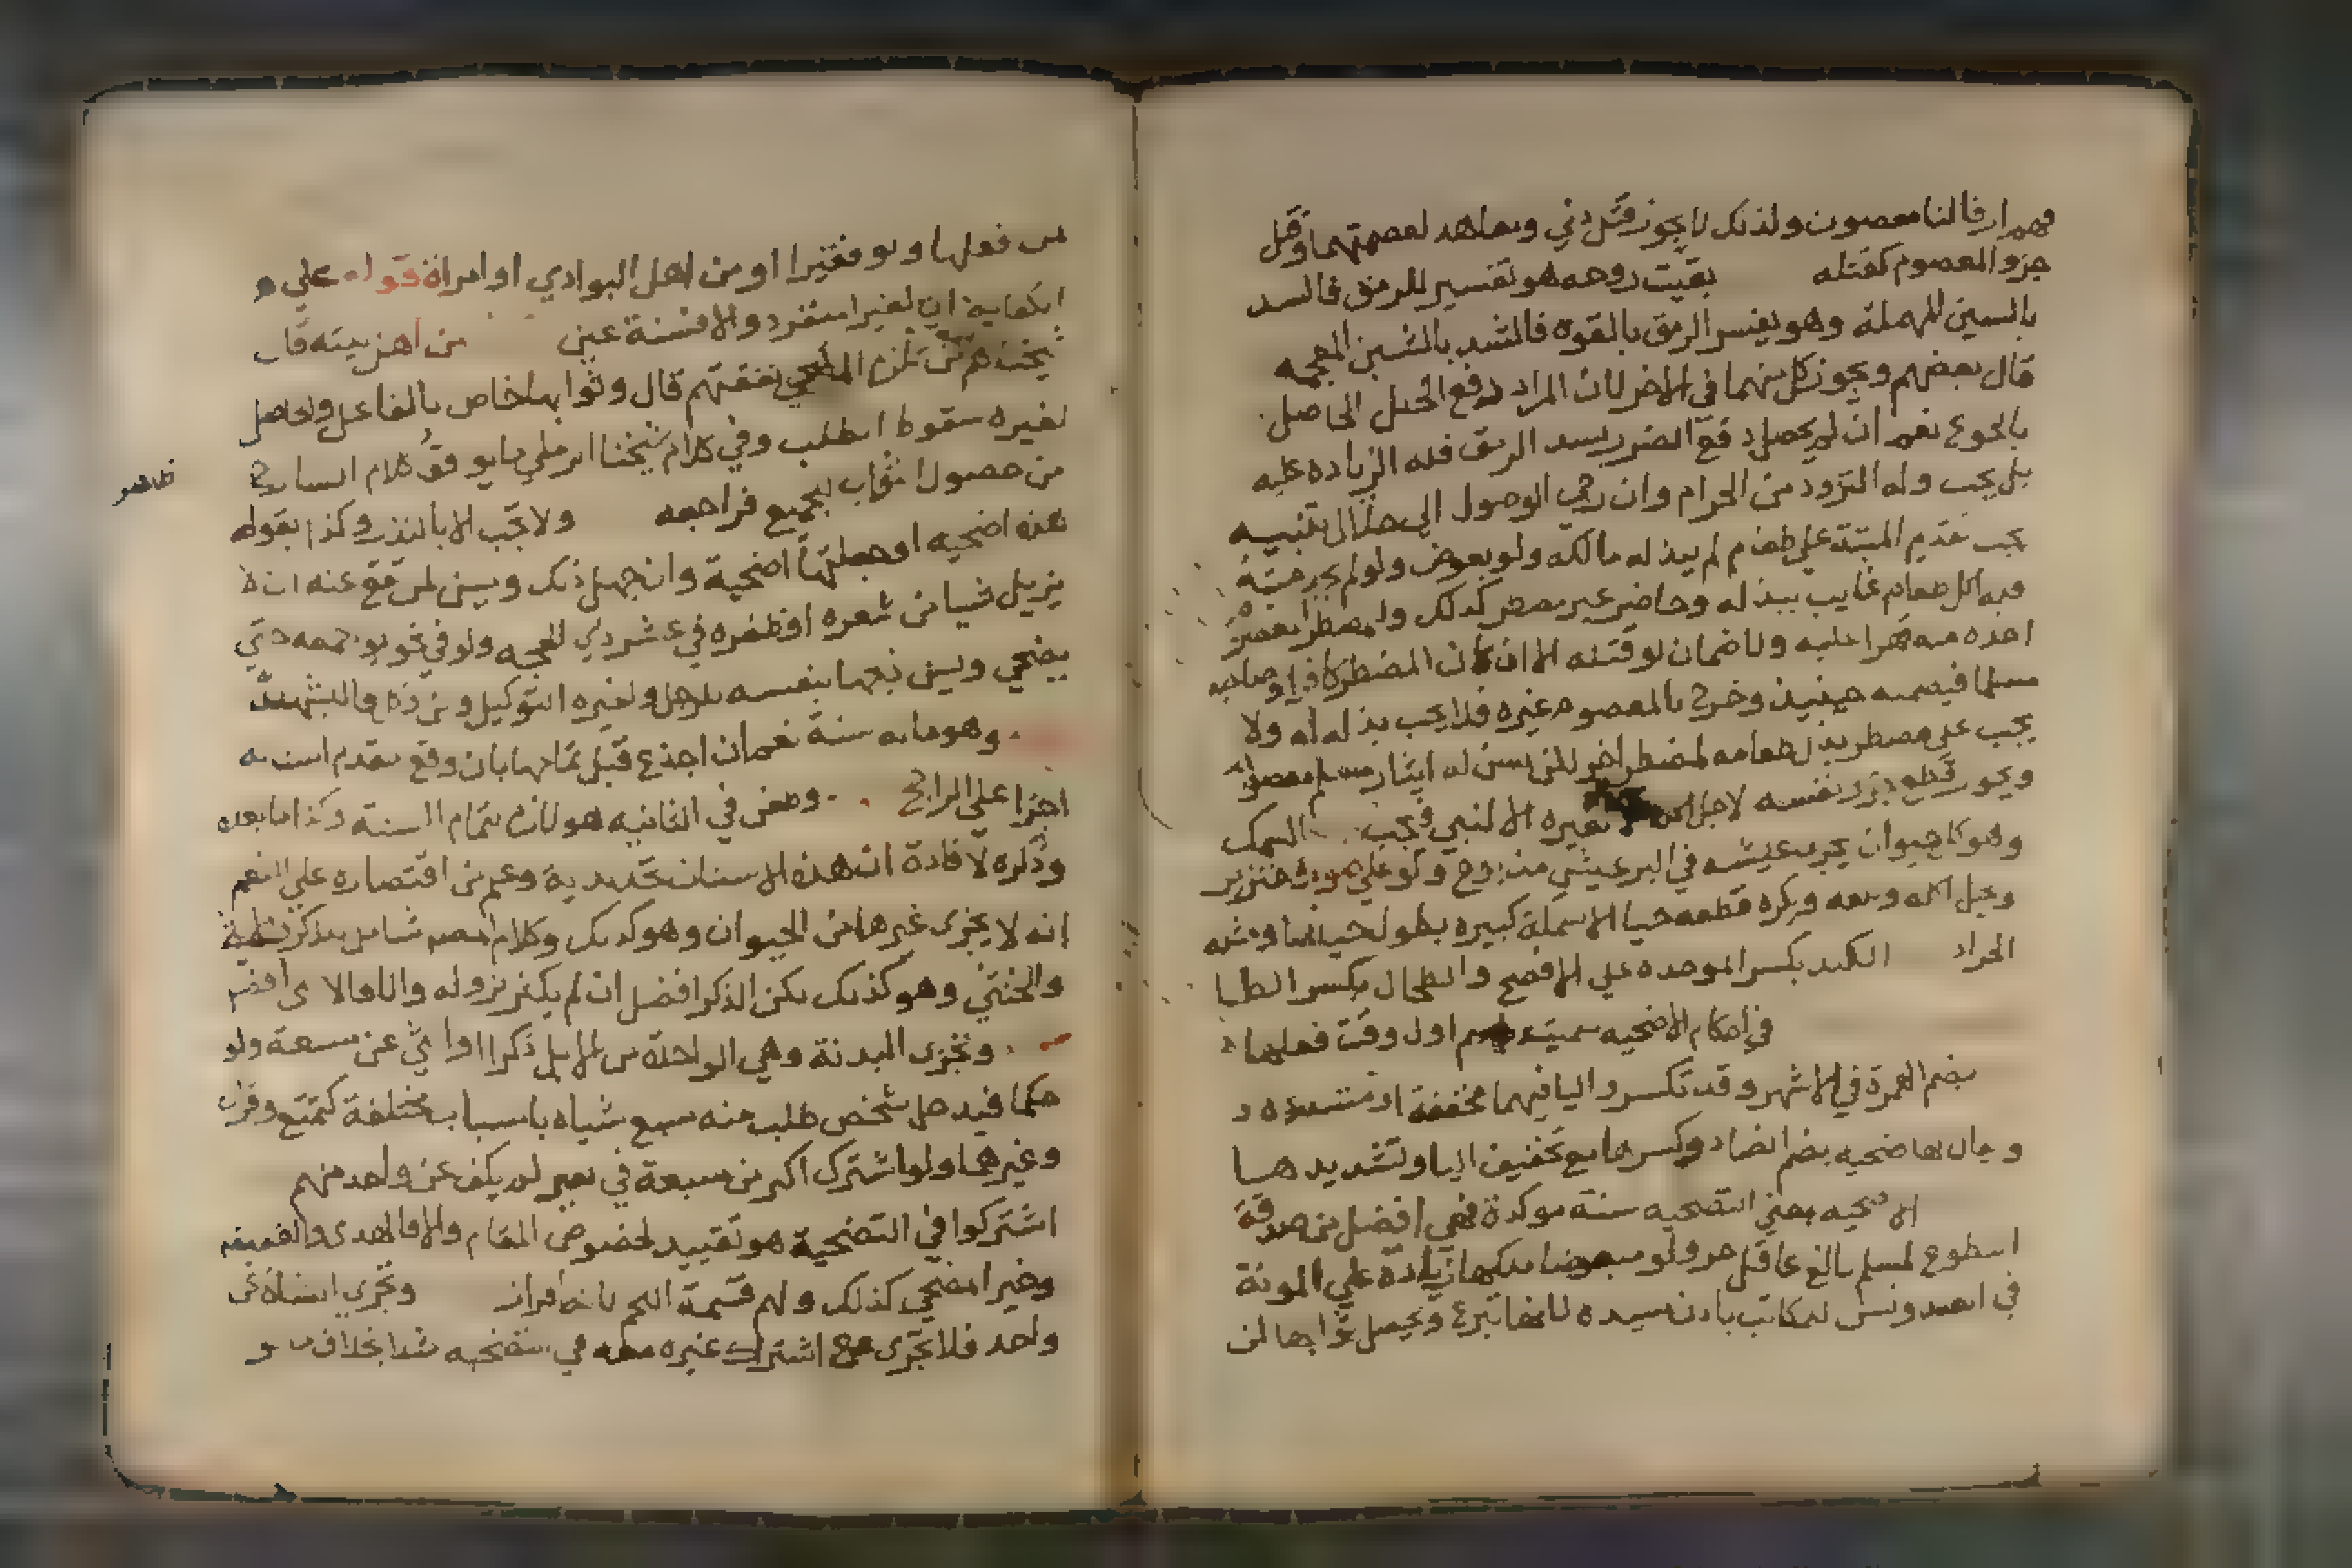 فهم ارقا لنا معصومون ولذلك لا يجوز قتل ذمي ومعاهد لعصمتهما وقتل
جزو المعصوم كقتله بقيت روحه هو تفسير للرمق فالسد
بالسين المهملة وهو يفسر الرمق بالقوه فالشد بالشين المعجمه
قال بعضهم ويجوز كل منهما في الاخر لان المراد دفع الخلل الحاصل
بالجوع نعم ان لم يحصل دفع الضرر بسد الرمق فله الزياده عليه
بل يجب وله التزود من الحرام وان رجى الوصول الى حلال تنبيه
يجب تقديم الميتة على طعام لم يبذله مالكه ولو بعوض ولو لم يجد ميتة
فله اكل طعام غايب ببدله وحاضر غير مضطر كذلك
اخذه منه قهرا عليه ولا ضمان لو قتله الا ان كان المضطر كافرا وصاحبه
مسلما فيضمنه حينيذ وخرج بالمعصوم غيره فلا يجب بذله له ولا
يجب على مضطر بذل طعامه لمضطر اخر لكن يسن له ايثار مسلم معصوم
ويجوز قطع جزء نفسه لاجل لغيره الا لنبي فيجب السمك
وهو كل حيوان يجري عيشه في البر عيش مذبوح ولو على صورة خنزير
وحل اكله وبلعه ويكره قطعه حيا الا سمكة كبيره يطول حياتها
الجراد الكبد بكسر الموحده على الافصح والطحال بكسر الطا
في احكام الاضحيه سميت باسم اول وقت فعلها
بضم الهمزة في الاشهر وقد تكسر واليا فيهما مخففة او مشدده
ويقال لها ضحيه بضم الضاد وكسرها مع تخفيف اليا وتشديدها
الاضحيه بمعنى التضحيه سنة موكدة فهي افضل من صدقة
التطوع لمسلم بالغ عاقل حر ولو مبعضا ملكها زيادة على المونة
في العيد وتسن لمكاتب باذن سيده لانها تبرع ويحصل ثوابها لمن
من فعلها ولو فقيرا او من اهل البوادي او امراة قوله على
الكفاية اي لغير منفرد والا فسنة عين من اهل بيته قال
شيخنا هم من تلزم المضحي نفقتهم قال وثوابها خاص بالفاعل والحاصل
لغيره سقوط الطلب وفي كلام شيخنا الرملي ما يوافق كلام الشارح
ظاهر
من حصول الثواب للجميع فراجعه ولا تجب الا بالنذر وكذا بقوله
هذه اضحيه او جعلتها اضحية وان جهل ذلك ويسن لمن تقع عنه ان لا
يزيل شيا من شعره او ظفره في عشر ذي الحجه ولو في نحو يوم جمعه حتى
يضحي ويسن ذبحها بنفسه للرجل ولغيره التوكيل
وهو ما له سنة نعم ان اجذع قبل تمامها بان وقع مقدم اسنانه
اجزا على الراجح وطعن في الثانيه هو لازم تمام السنة وكذا ما بعده
وذكره لافادة ان هذه الاسنان تحديدية وعلم من اقتصاره على النعم
انه لا يجزي غيرها من الحيوان وهو كذلك وكلام المصنف شامل للذكر
والخنثى وهو كذلك لكن الذكر افضل ان لم يكثر نزوله والا فالانثى افضل
وتجزي البدنة وهي الواحدة من الابل ذكرا او انثى عن سبعة ولو
حكما فيدخل شخص طلب منه سبع شياه باسباب مختلفة كتمتع وقران
وغيرهما ولو اشترك اكثر من سبعة في بعير لم يكف عن واحد منهم
اشتركوا في التضحية هو تقييد لخصوص المقام والا فالهدي والعقيقه
وغير المضحي كذلك ولهم قسمة اللحم لانها افراز وتجزي الشاة عن
واحد فلا تجزي مع اشتراك غيره معه في